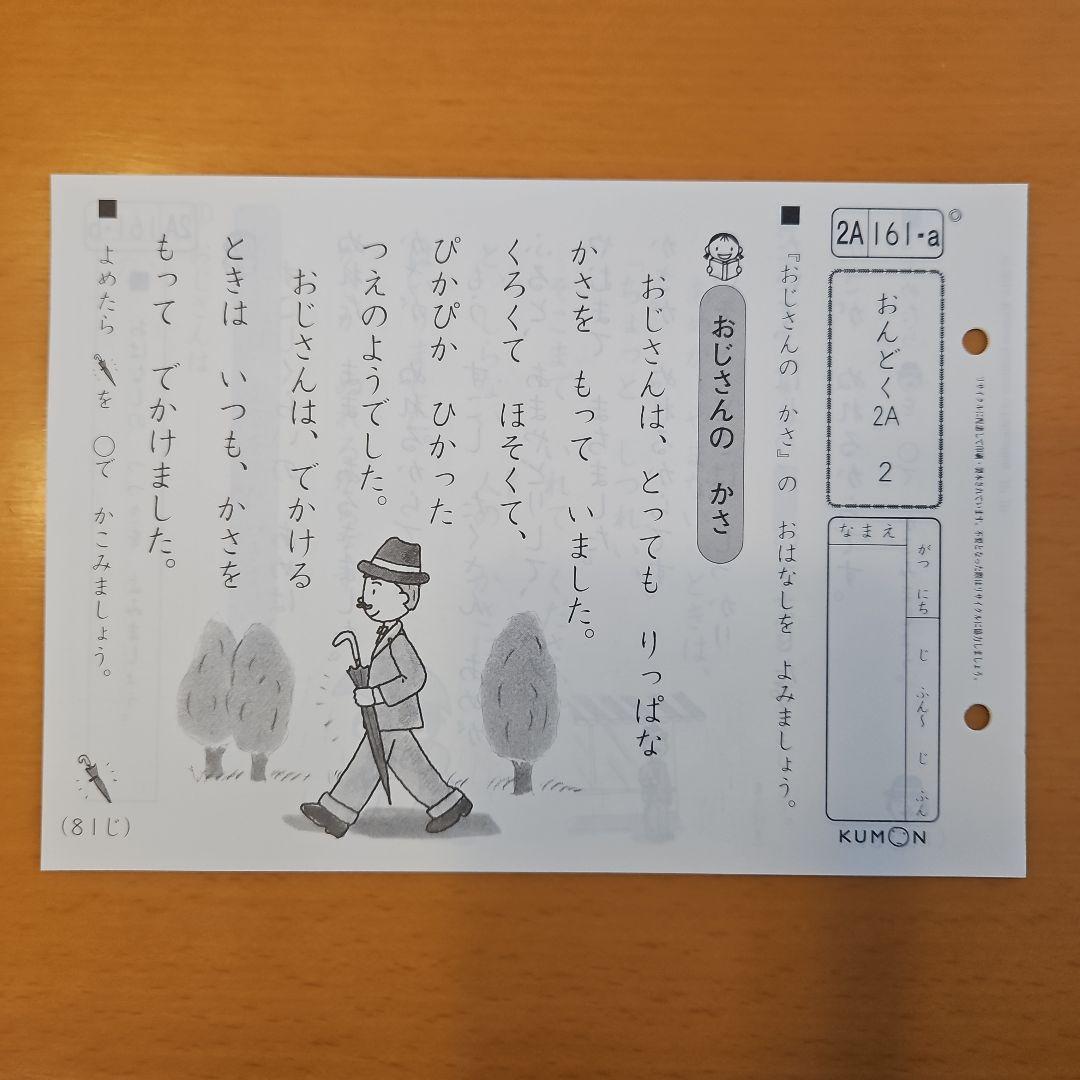 2A 161-a
おんどく2A 2
なまえ
がつ にち
じ ふん〜 じ ふん
KUMON
■『おじさんの かさ』の おはなしを よみましょう。
おじさんの かさ
おじさんは、とっても りっぱな
かさを もって いました。
くろくて ほそくて、
ぴかぴか ひかった
つえのようでした。
おじさんは、でかける
ときは いつも、かさを
もって でかけました。
■よめたら を ○で かこみましょう。
(81じ)